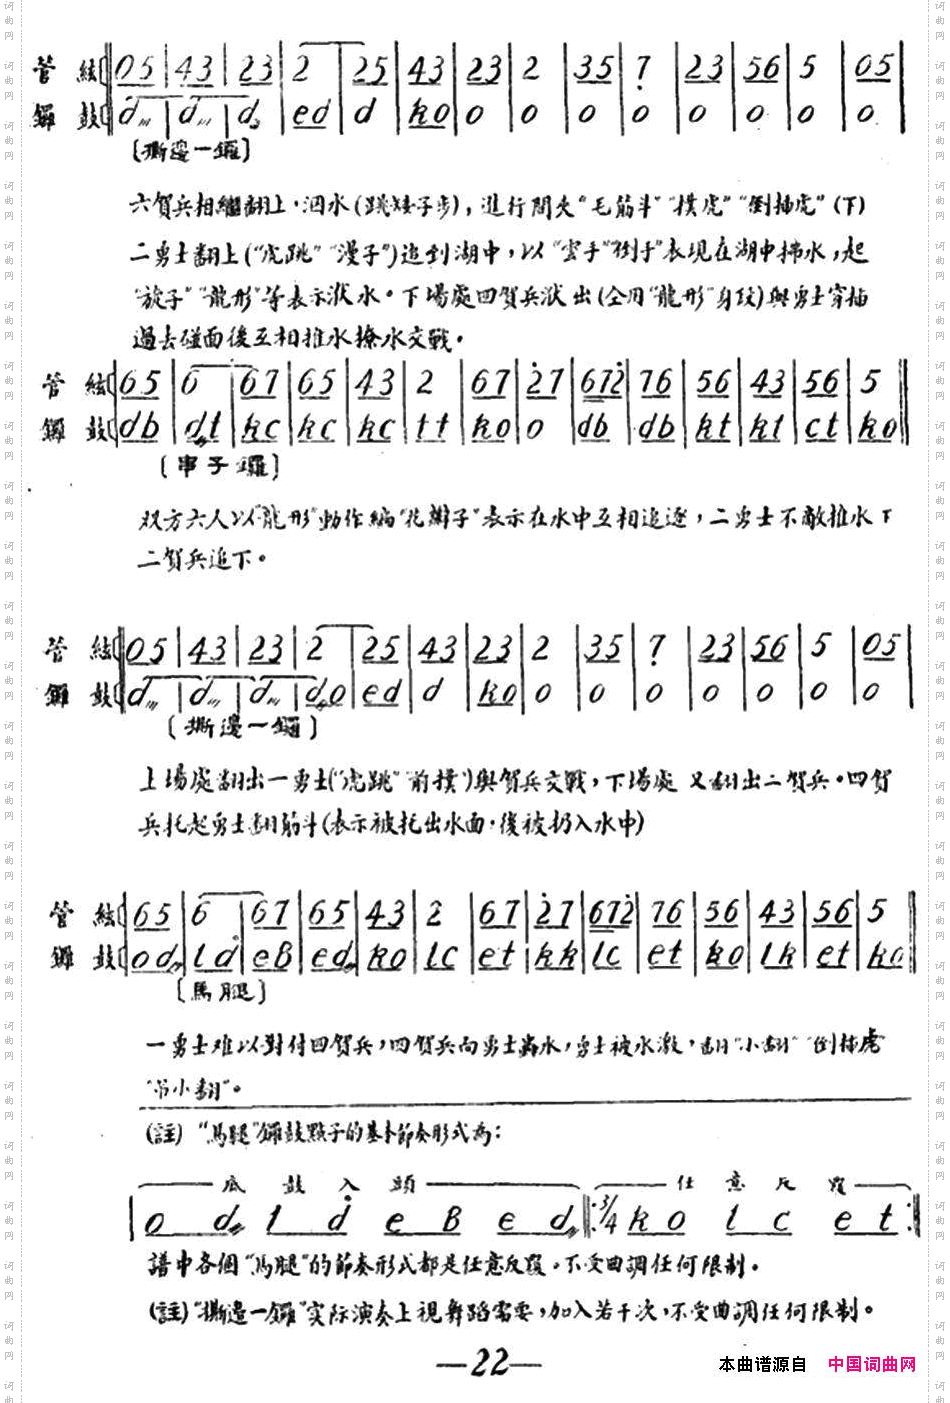 管 絃 05 | 43 | 23 | 2 | 25 | 43 | 23 | 2 | 35 | 7 | 23 | 56 | 5 | 05 |
鑼 鼓 d | d | d | ed | d | ko | o | o | o | o | o | o | o | o |
〔撕邊一鑼〕
六賀兵相繼翻上,泗水(跳矮子步),進行間夾"毛筋斗""撲虎""倒插虎"(下)
二勇士翻上("虎跳""漫子")追到湖中,以"雲手""倒手"表現在湖中拂水,起
"旋子""龍形"等表示洑水。下場處四賀兵洑出(全用"龍形"身段)與勇士穿插
過去碰面後互相推水撩水交戰。
管 絃 65 | 6 | 67 | 65 | 43 | 2 | 67 | 27 | 672 | 76 | 56 | 43 | 56 | 5 ‖
鑼 鼓 db | dt | kc | kc | kc | tt | ko | o | db | db | kt | kt | ct | ko ‖
〔串子鑼〕
双方六人以"龍形"動作編"花辮子"表示在水中互相追逐,二勇士不敵推水下
二賀兵追下。
管 絃 05 | 43 | 23 | 2 | 25 | 43 | 23 | 2 | 35 | 7 | 23 | 56 | 5 | 05 |
鑼 鼓 d | d | d | do | ed | d | ko | o | o | o | o | o | o | o |
〔撕邊一鑼〕
上場處翻出一勇士("虎跳""前撲")與賀兵交戰,下場處又翻出二賀兵。四賀
兵托起勇士翻筋斗(表示被托出水面,後被扔入水中)
管 絃 65 | 6 | 67 | 65 | 43 | 2 | 67 | 27 | 672 | 76 | 56 | 43 | 56 | 5 ‖
鑼 鼓 od | ld | eB | ed | ko | lc | et | kk | lc | et | ko | lk | et | ko ‖
〔馬腿〕
一勇士难以對付四賀兵,四賀兵向勇士水,勇士被水激,翻"小翻""倒插虎"
"吊小翻"。
(註)"馬腿"鑼鼓點子的基本節奏形式為:
底 鼓 入 頭 任 意 反 覆
| o d l d e B e d ‖: 3/4 k o l c e t :‖
譜中各個"馬腿"的節奏形式都是任意反覆。不受曲調任何限制。
(註)"撕邊一鑼"实际演奏上視舞蹈需要,加入若干次,不受曲調任何限制。
—22—
本曲谱源自 中国词曲网